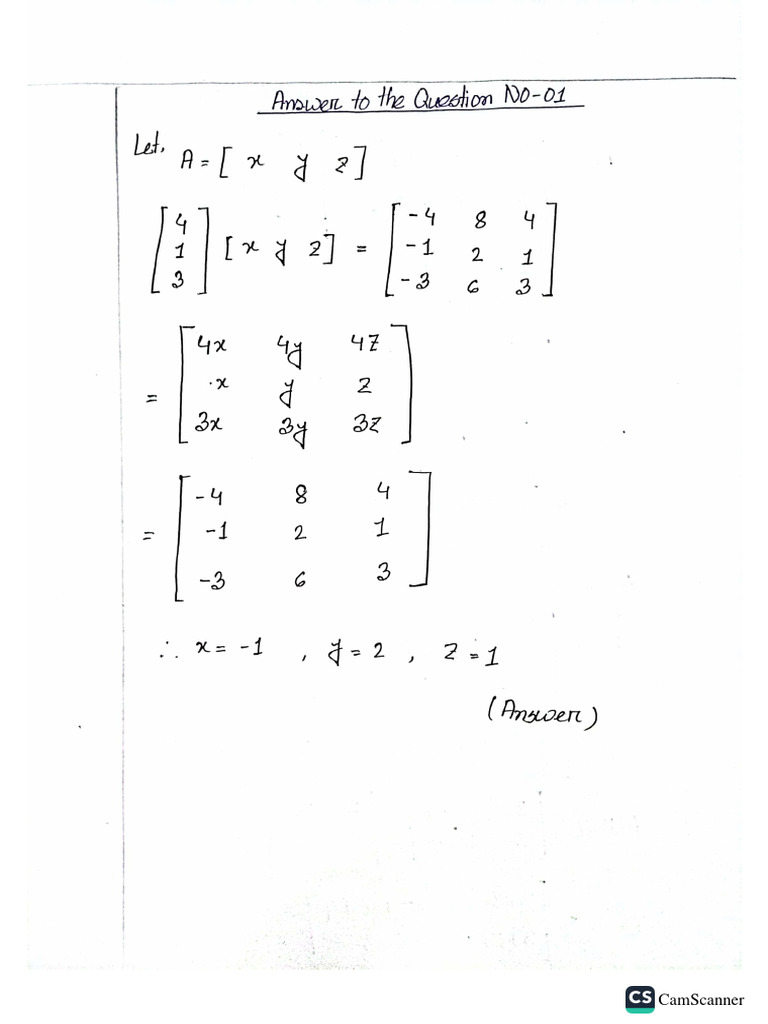 Answer to the Question NO-01
Let, A = [ x y z ]
[ 4 1 3 ] [ x y z ] = [ -4 8 4
-1 2 1
-3 6 3 ]
= [ 4x 4y 4z
x y z
3x 3y 3z ]
= [ -4 8 4
-1 2 1
-3 6 3 ]
∴ x = -1 , y = 2 , z = 1
(Answer)
CS CamScanner